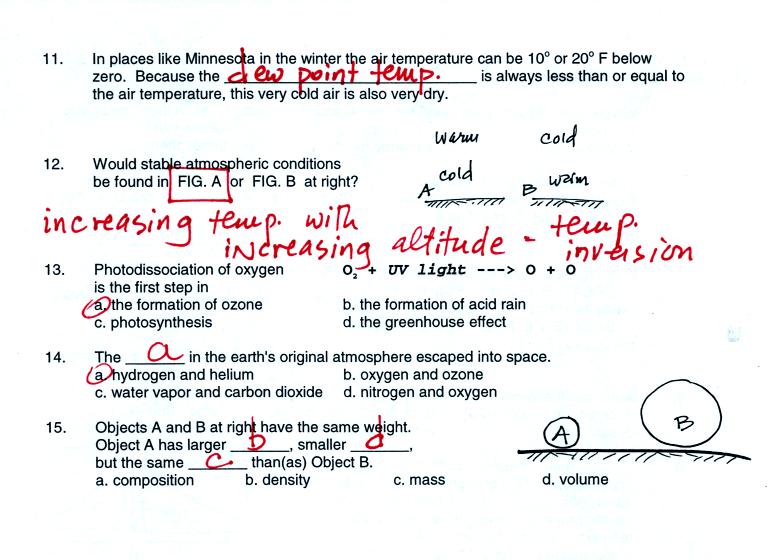 11. In places like Minnesota in the winter the air temperature can be 10° or 20° F below
zero. Because the dew point temp. is always less than or equal to
the air temperature, this very cold air is also very dry.
warm cold
12. Would stable atmospheric conditions
be found in FIG. A or FIG. B at right?
A cold B warm
increasing temp. with
increasing altitude - temp.
inversion
13. Photodissociation of oxygen O₂ + UV light ---> O + O
is the first step in
a. the formation of ozone b. the formation of acid rain
c. photosynthesis d. the greenhouse effect
14. The a in the earth's original atmosphere escaped into space.
a. hydrogen and helium b. oxygen and ozone
c. water vapor and carbon dioxide d. nitrogen and oxygen
15. Objects A and B at right have the same weight.
Object A has larger b, smaller d,
but the same c than(as) Object B.
A B
a. composition b. density c. mass d. volume